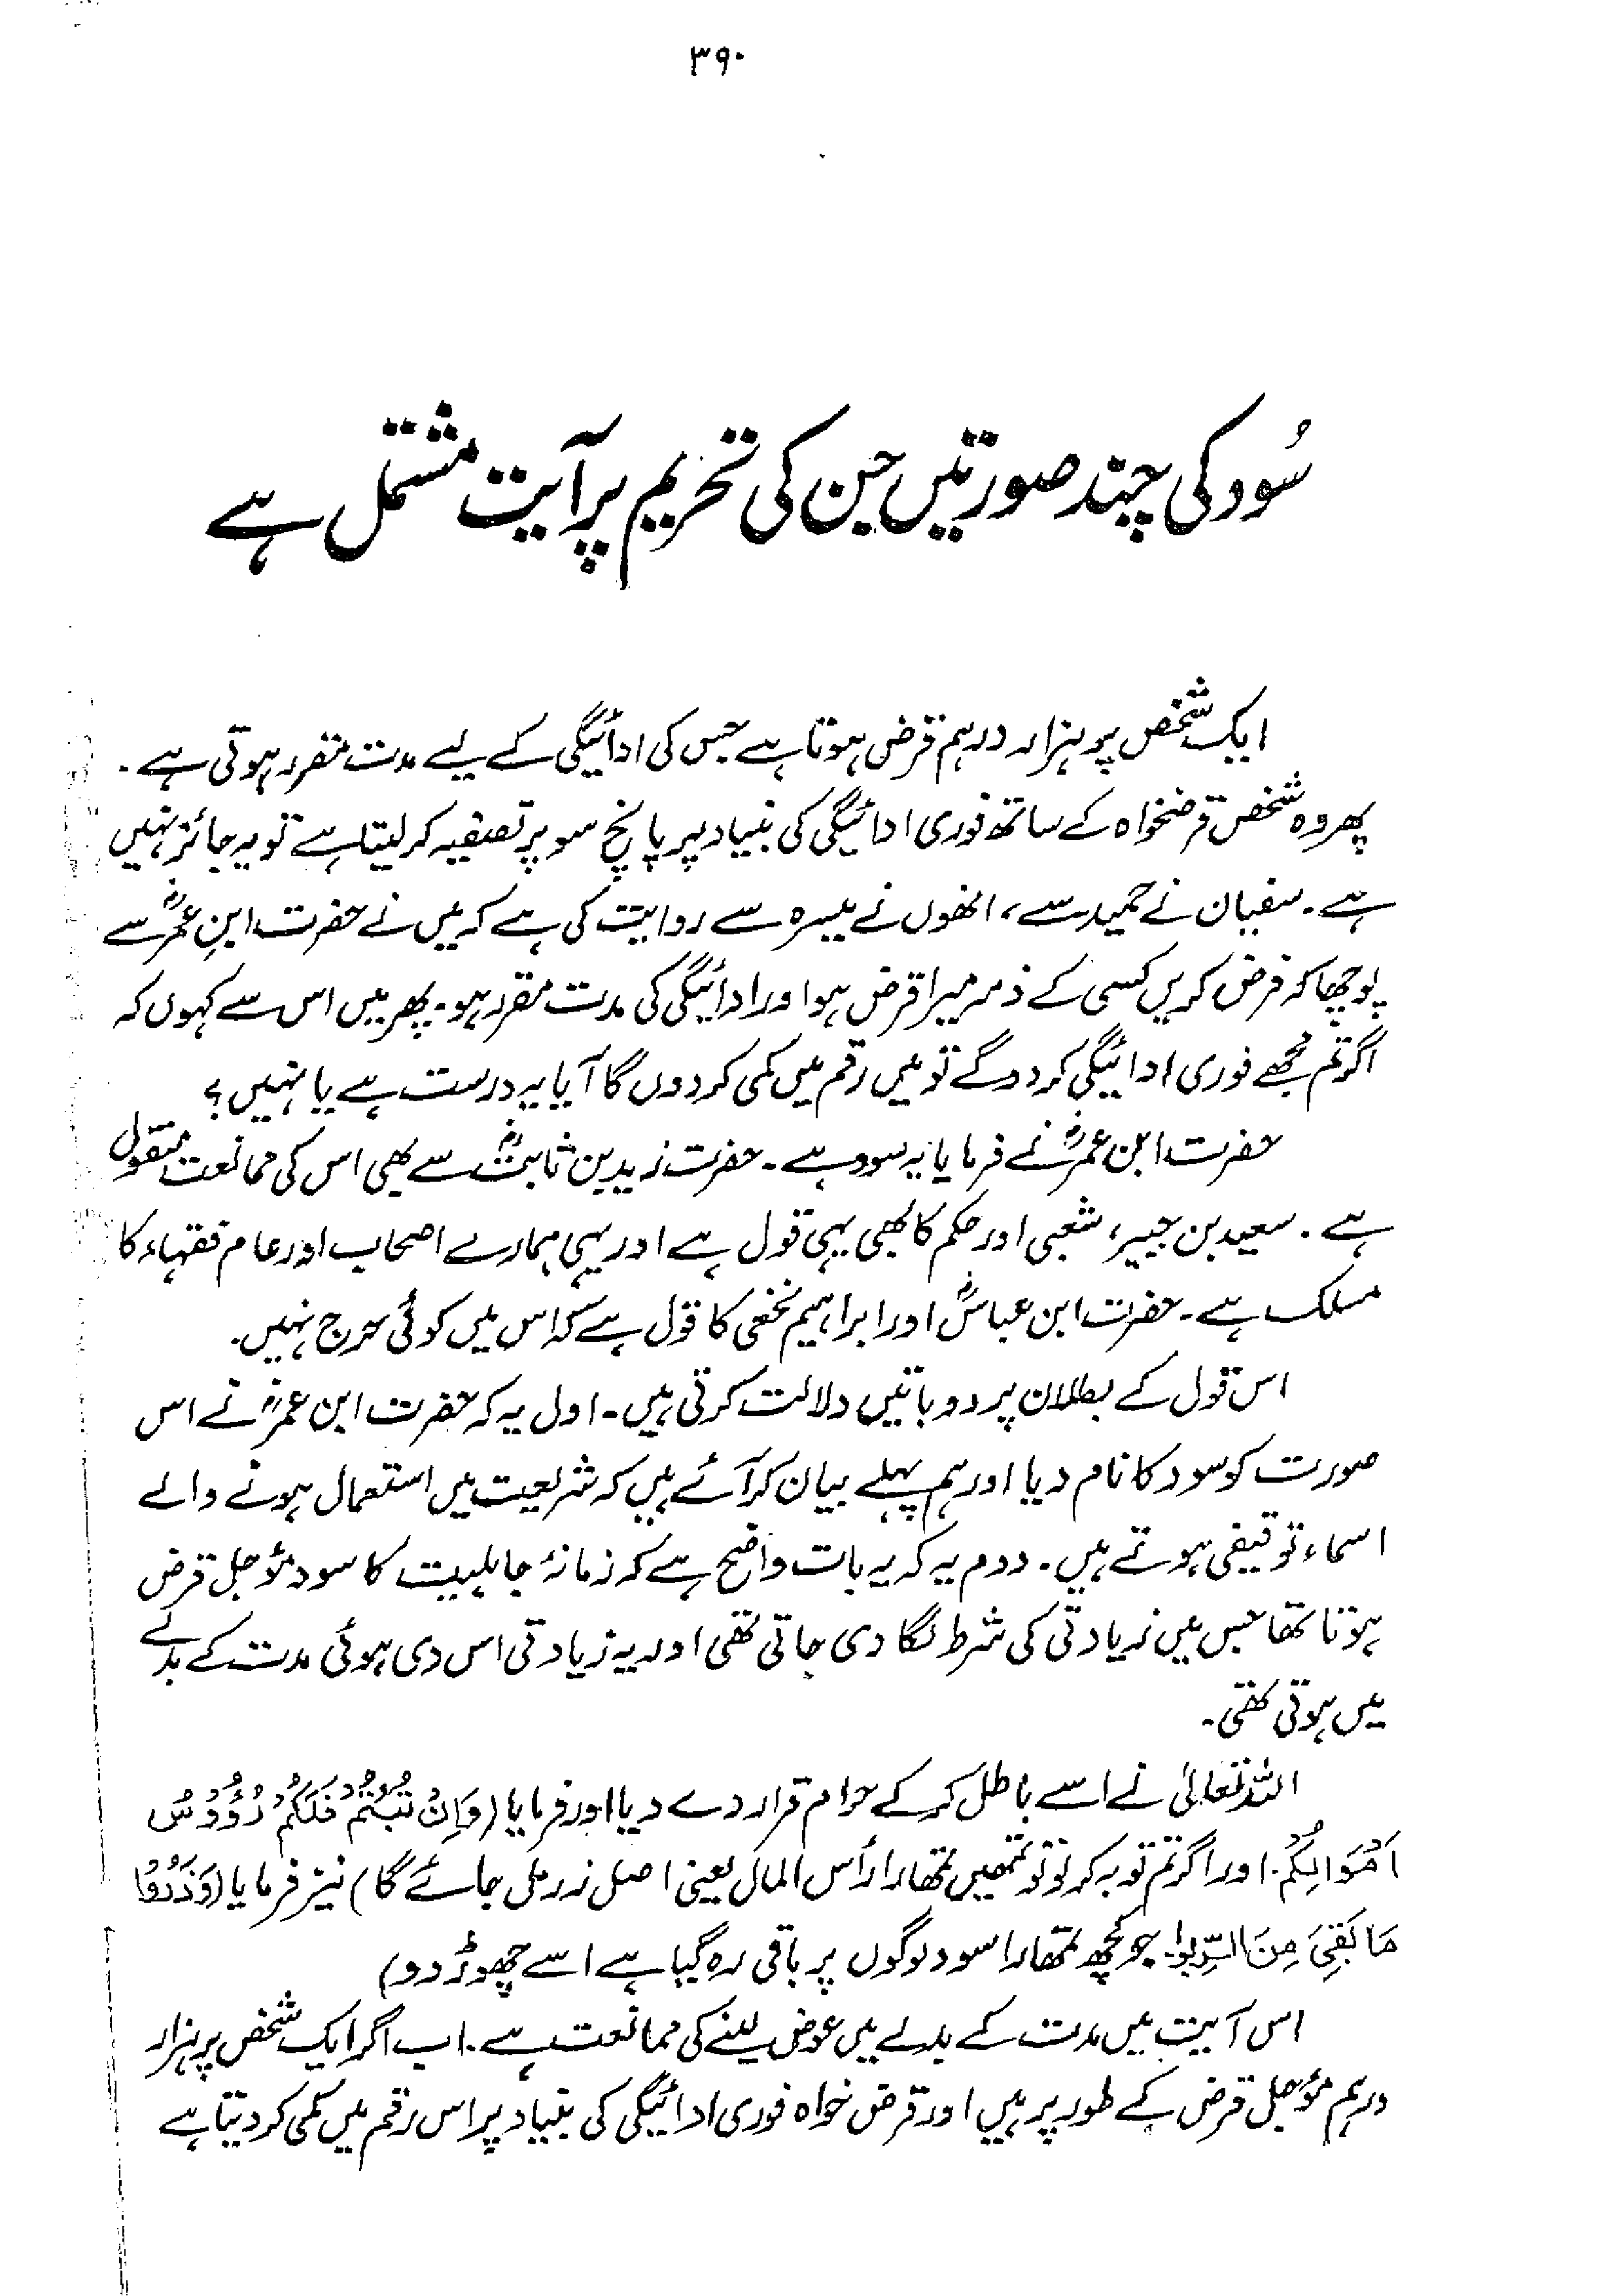 ۳۹۰
سُود کی چند صورتیں جن کی تحریم پر آیت مشتمل ہے
ایک شخص پر ہزار درہم قرض ہوتا ہے جس کی ادائیگی کے لیے مدت مقرر ہوتی ہے۔
پھر وہ شخص قرضخواہ کے ساتھ فوری ادائیگی کی بنیاد پر پانچ سو پر تصفیہ کر لیتا ہے تو یہ جائز نہیں
ہے۔ سفیان نے حمید سے، انھوں نے میسرہ سے روایت کی ہے کہ میں نے حضرت ابنِ عمرؓ سے
پوچھا کہ فرض کریں کسی کے ذمہ میرا قرض ہو اور ادائیگی کی مدت مقرر ہو۔ پھر میں اس سے کہوں کہ
اگر تم مجھے فوری ادائیگی کر دو گے تو میں رقم میں کمی کر دوں گا آیا یہ درست ہے یا نہیں؟
حضرت ابن عمرؓ نے فرمایا یہ سود ہے۔ حضرت زید بن ثابتؓ سے بھی اس کی ممانعت منقول
ہے۔ سعید بن جبیر، شعبی اور حکم کا بھی یہی قول ہے اور یہی ہمارے اصحاب اور عام فقہاء کا
مسلک ہے۔ حضرت ابن عباسؓ اور ابراہیم نخعی کا قول ہے کہ اس میں کوئی حرج نہیں۔
اس قول کے بطلان پر دو باتیں دلالت کرتی ہیں۔ اول یہ کہ حضرت ابن عمرؓ نے اس
صورت کو سود کا نام دیا اور ہم پہلے بیان کر آئے ہیں کہ شریعت میں استعمال ہونے والے
اسماء توقیفی ہوتے ہیں۔ دوم یہ کہ یہ بات واضح ہے کہ زمانۂ جاہلیت کا سود مؤجل قرض
ہوتا تھا جس میں زیادتی کی شرط لگا دی جاتی تھی اور یہ زیادتی اس دی ہوئی مدت کے بدلے
میں ہوتی تھی۔
اللہ تعالیٰ نے اسے باطل کر کے حرام قرار دے دیا اور فرمایا (وَاِنْ تُبْتُمْ فَلَكُمْ رُؤُوْسُ
اَمْوَالِكُمْ۔ اور اگر تم توبہ کر لو تو تمھیں تمھارا رأس المال یعنی اصل زر مل جائے گا) نیز فرمایا (وَذَرُوْا
مَا بَقِیَ مِنَ الرِّبٰوا۔ جو کچھ تمھارا سود لوگوں پر باقی رہ گیا ہے اسے چھوڑ دو)
اس آیت میں مدت کے بدلے میں عوض لینے کی ممانعت ہے۔ اب اگر ایک شخص پر ہزار
درہم مؤجل قرض کے طور پر ہیں اور قرض خواہ فوری ادائیگی کی بنیاد پر اس رقم میں کمی کر دیتا ہے